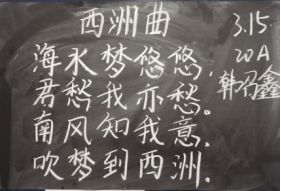 西洲曲
海水梦悠悠，
君愁我亦愁。
南风知我意，
吹梦到西洲．
3.15
20A
韩召鑫